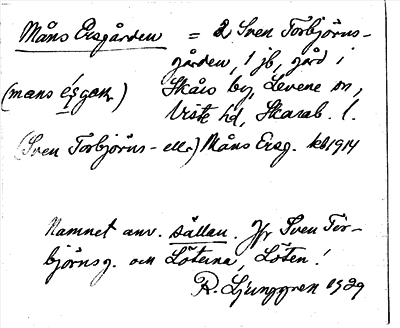 Måns Ersgården = 2 Sven Torbjörns-
gården, 1 jb, gård i
(mans ésgaɳ) Skårs by, Levene sn,
Viste hd, Skarab. l.
(Sven Torbjörns- eller) Måns Ersg. kb1914
Namnet anv. sällan. Jfr Sven Tor-
björnsg. och Löterna, Löten!
R. Ljunggren 1929